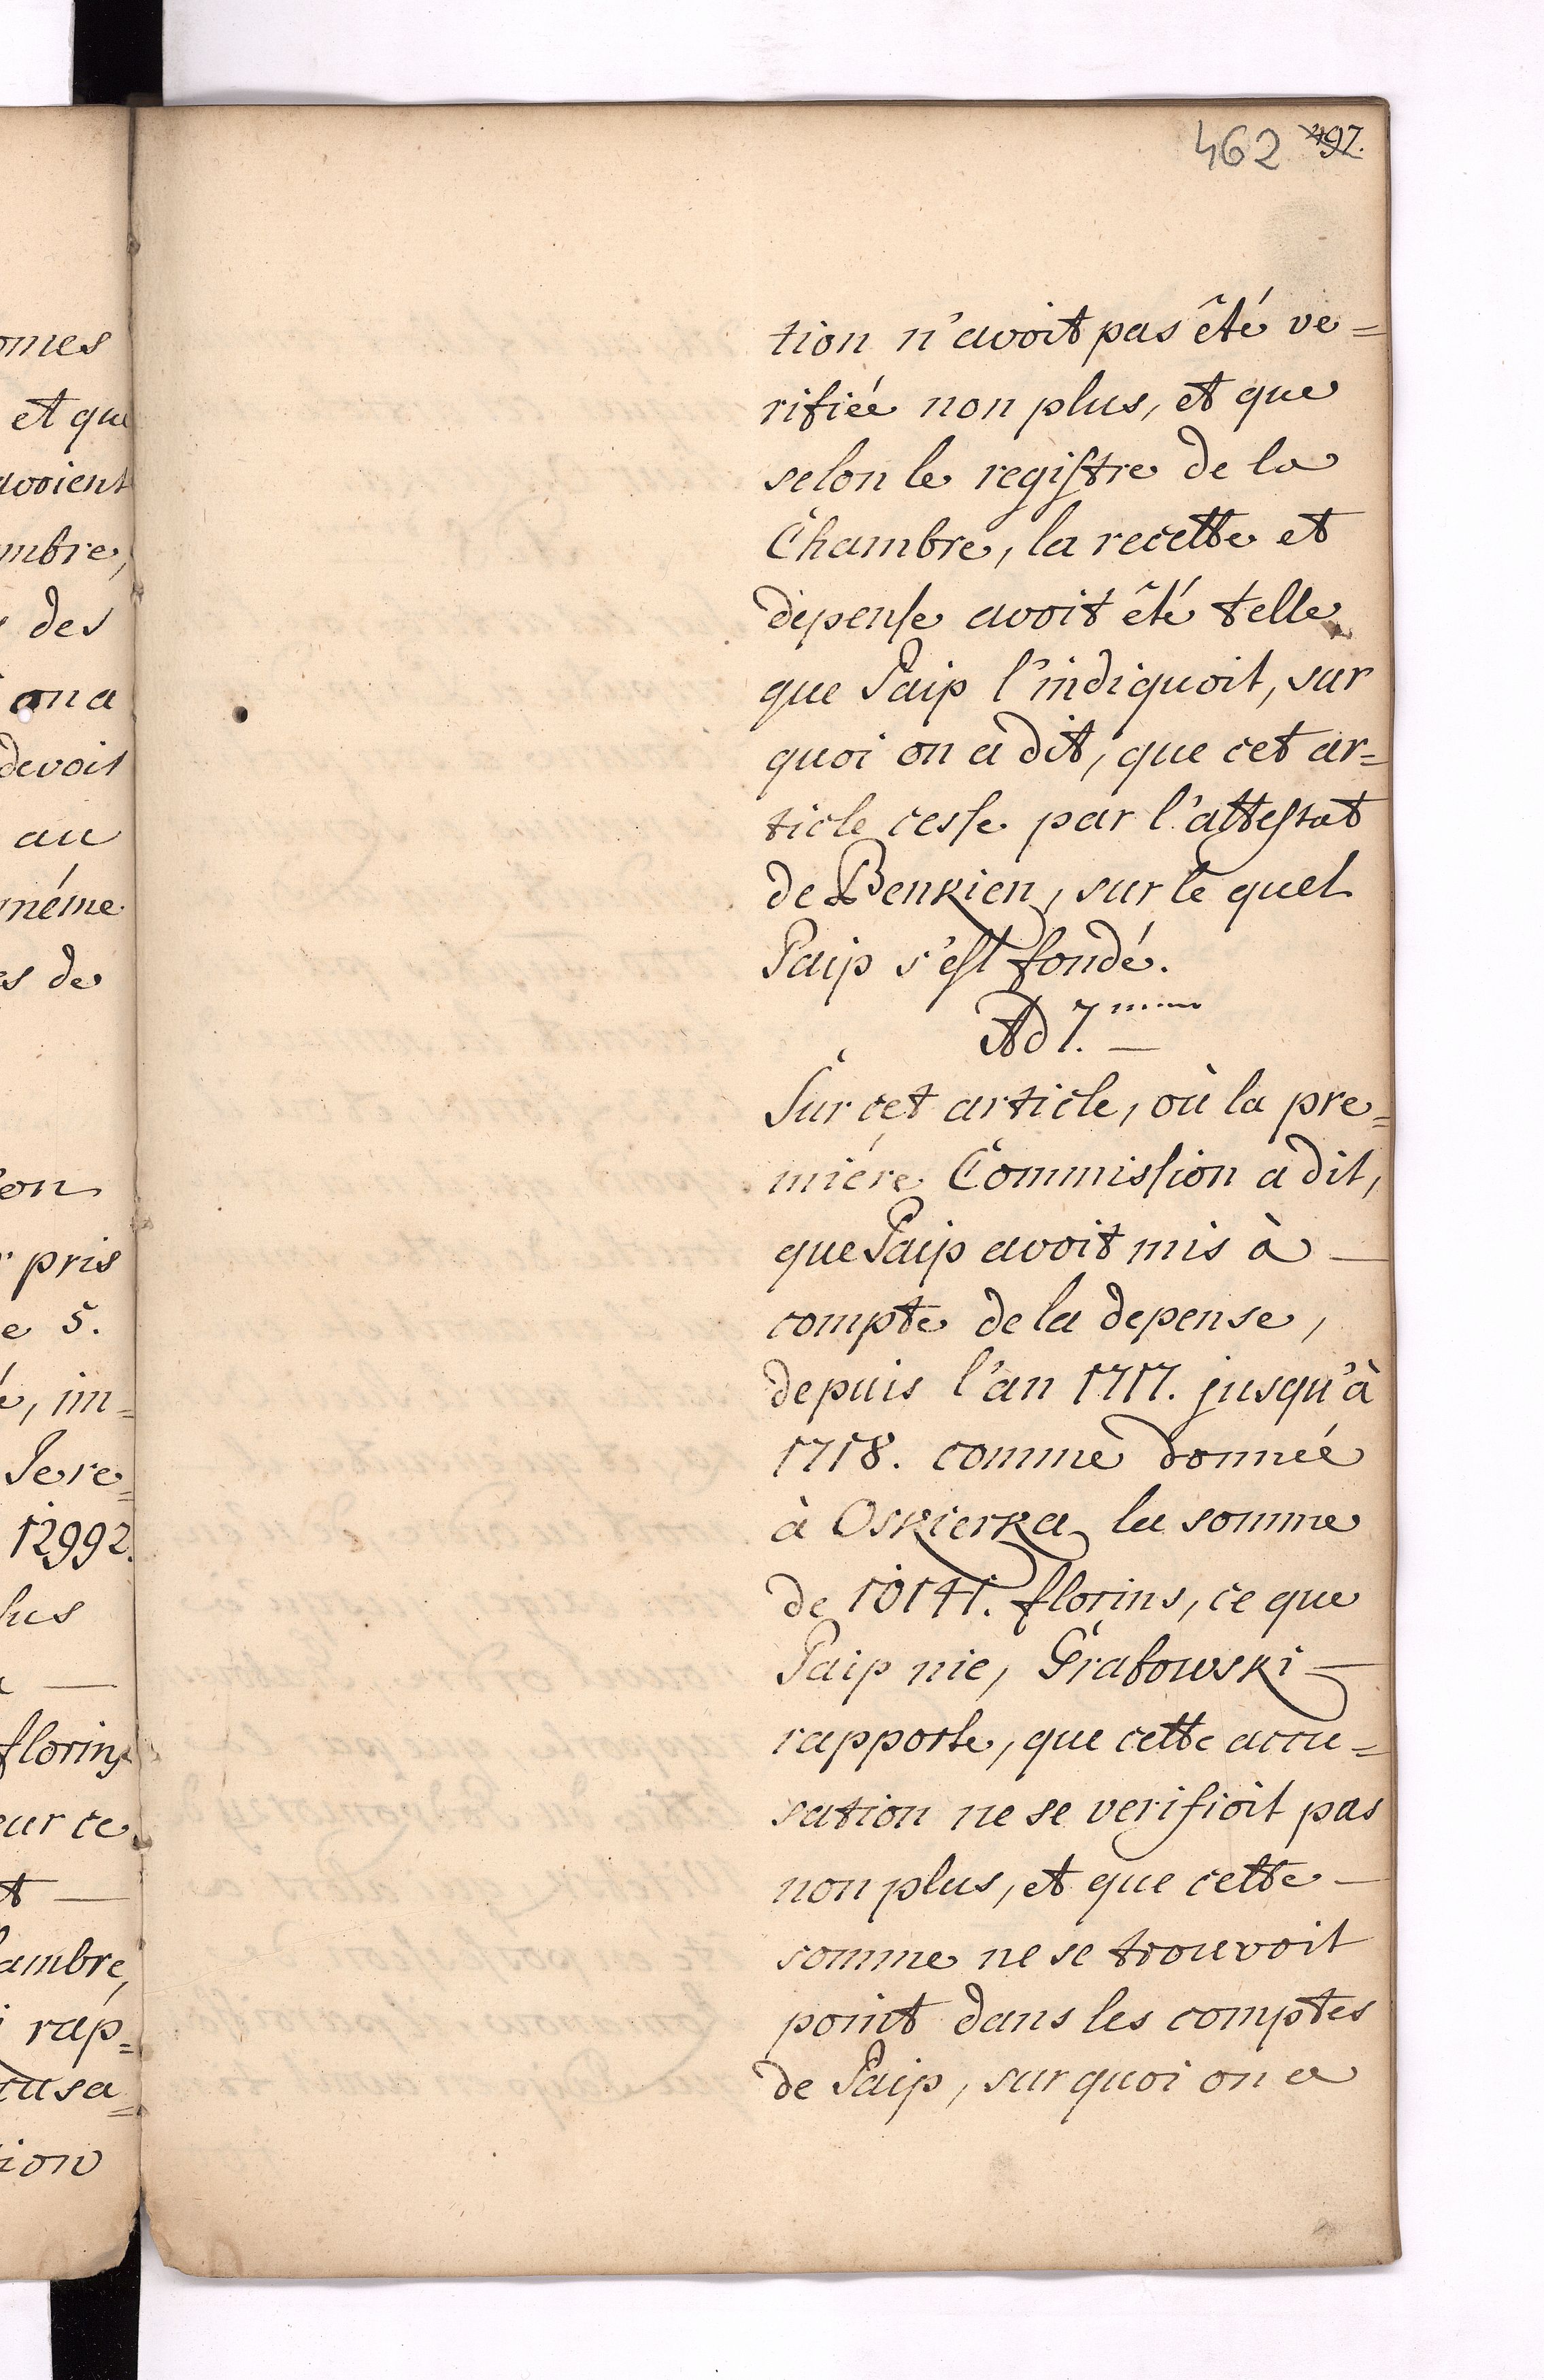 462 497.
omes
et que
avoient
mbre,
des
on a
devoit
au
même
es de
on
pris
e 5.
é, im=
Jere=
12992.
lus
florins
eur ce
t —
ambre,
i rap=
cusa=
tion
tion n'avoit pas été ve=
rifiée non plus, et que
selon le registre de la
Chambre, la recette et
depense avoit été telle
que Paip l'indiquoit, sur
quoi on a dit, que cet ar=
ticle cesse par l'attestat
de Benkien, sur le quel
Paip s'est fondé.
Ad 7.mum
Sur cet article, où la pre=
miére Commission a dit,
que Paip avoit mis à —
compte de la depense,
depuis l'an 1717. jusqu'à
1718. comme donnée
à Oskierka la somme
de 10141. florins, ce que
Paip nie, Grabowski —
rapporte, que cette accu=
sation ne se verifioit pas
non plus, et que cette —
somme ne se trouvoit
point dans les comptes
de Paip, sur quoi on a